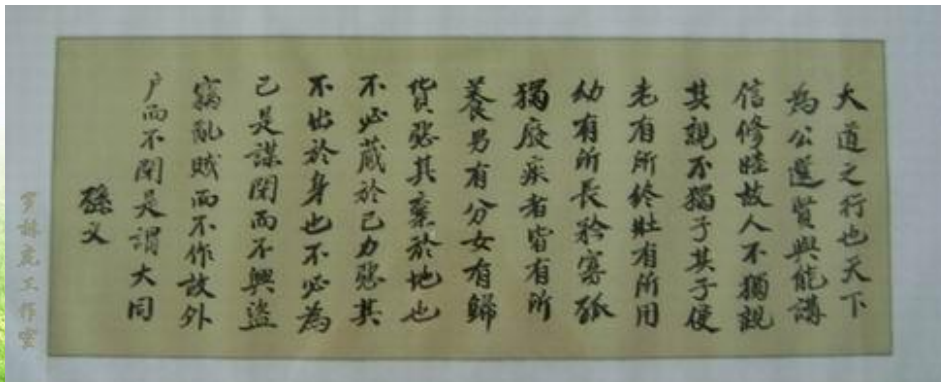 大道之行也天下
為公選賢與能講
信修睦故人不獨親
其親不獨子其子使
老有所終壯有所用
幼有所長矜寡孤
獨廢疾者皆有所
養男有分女有歸
貨惡其棄於地也
不必藏於己力惡其
不出於身也不必為
己是謀閉而不興盜
竊亂賊而不作故外
户而不閉是謂大同
孫文
罗林工作室